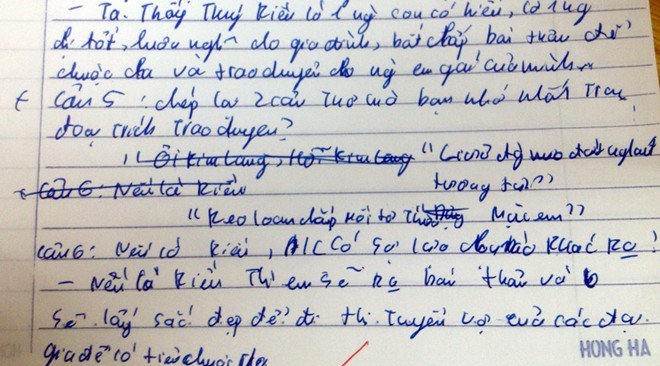 - Ta. Thấy Thuý Kiều là 1 ng con có hiếu, có lòng
tốt, luôn nghĩ cho gia đình, bất chấp bản thân để
chuộc cha và trao duyên cho ng em gái của mình
Câu 5: chép lại 2 câu Thơ mà bạn nhớ nhất Trong
đoạn trích Trao duyên?
" Ôi Kim lang, Hỡi Kim lang "Giữa đg
tương tư"
Câu 6: Nếu là Kiều
"Keo loan chắp mối tơ Thừa Mặc em"
Câu 6: Nếu là Kiều, A/C Có Sự lựa chọn nào Khác Ko!
- Nếu là Kiều Thì em Sẽ Ko bán Thân và
Sẽ lấy sắc đẹp để đi thi Tuyển vợ của các đại
gia để có tiền chuộc cha
HONG HA